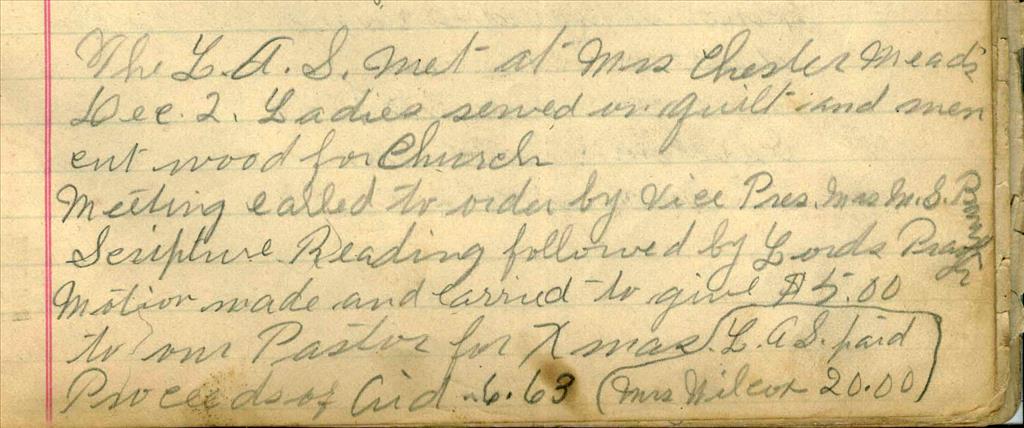 The L.A.S. met at Mrs Chester Mead's
Dec. 2. Ladies sewed on quilt and men
cut wood for Church
Meeting called to order by Vice Pres. Mrs M.S.
Scripture Reading followed by Lords Prayer
Motion made and carried to give $5.00
to our Pastor for Xmas. L.A.S. paid
Proceeds of Aid 6.63 (Mrs Wilcox 20.00)